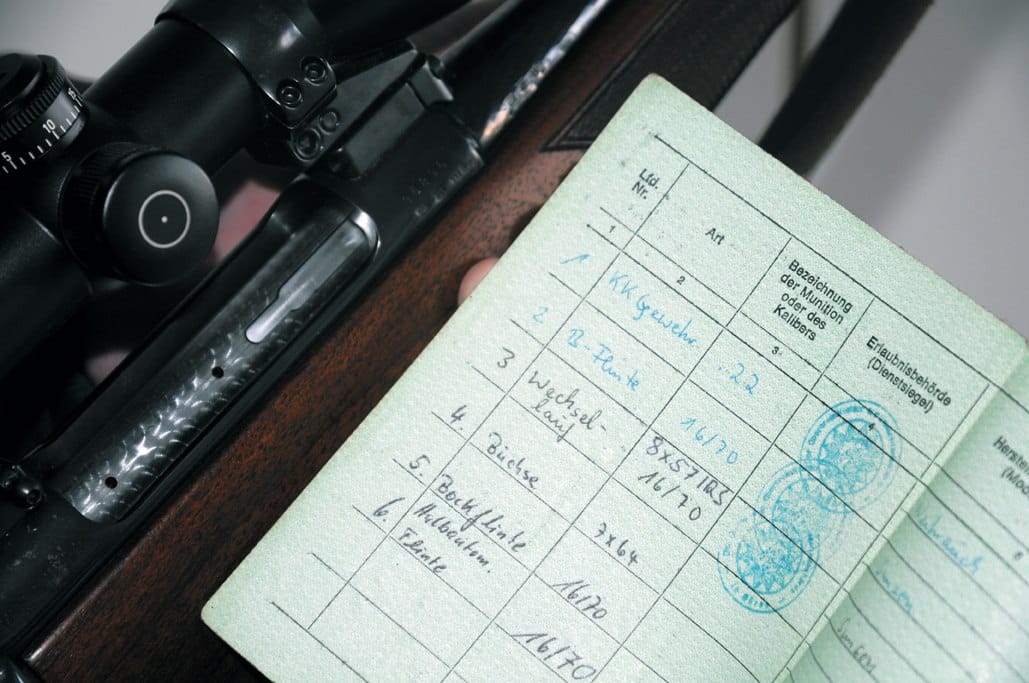 10
5
Lfd.
Nr.
Art
Bezeichnung
der Munition
oder des
Kalibers
Erlaubnisbehörde
(Dienstsiegel)
1
2
3
4
1 KK Gewehr .22
2 B-Flinte 16/70
3 Wechsel-
lauf
8x57 IRS
16/70
4. Büchse 7x64
5. Bockflinte 16/70
6. Halbautom.
Flinte 16/70
6